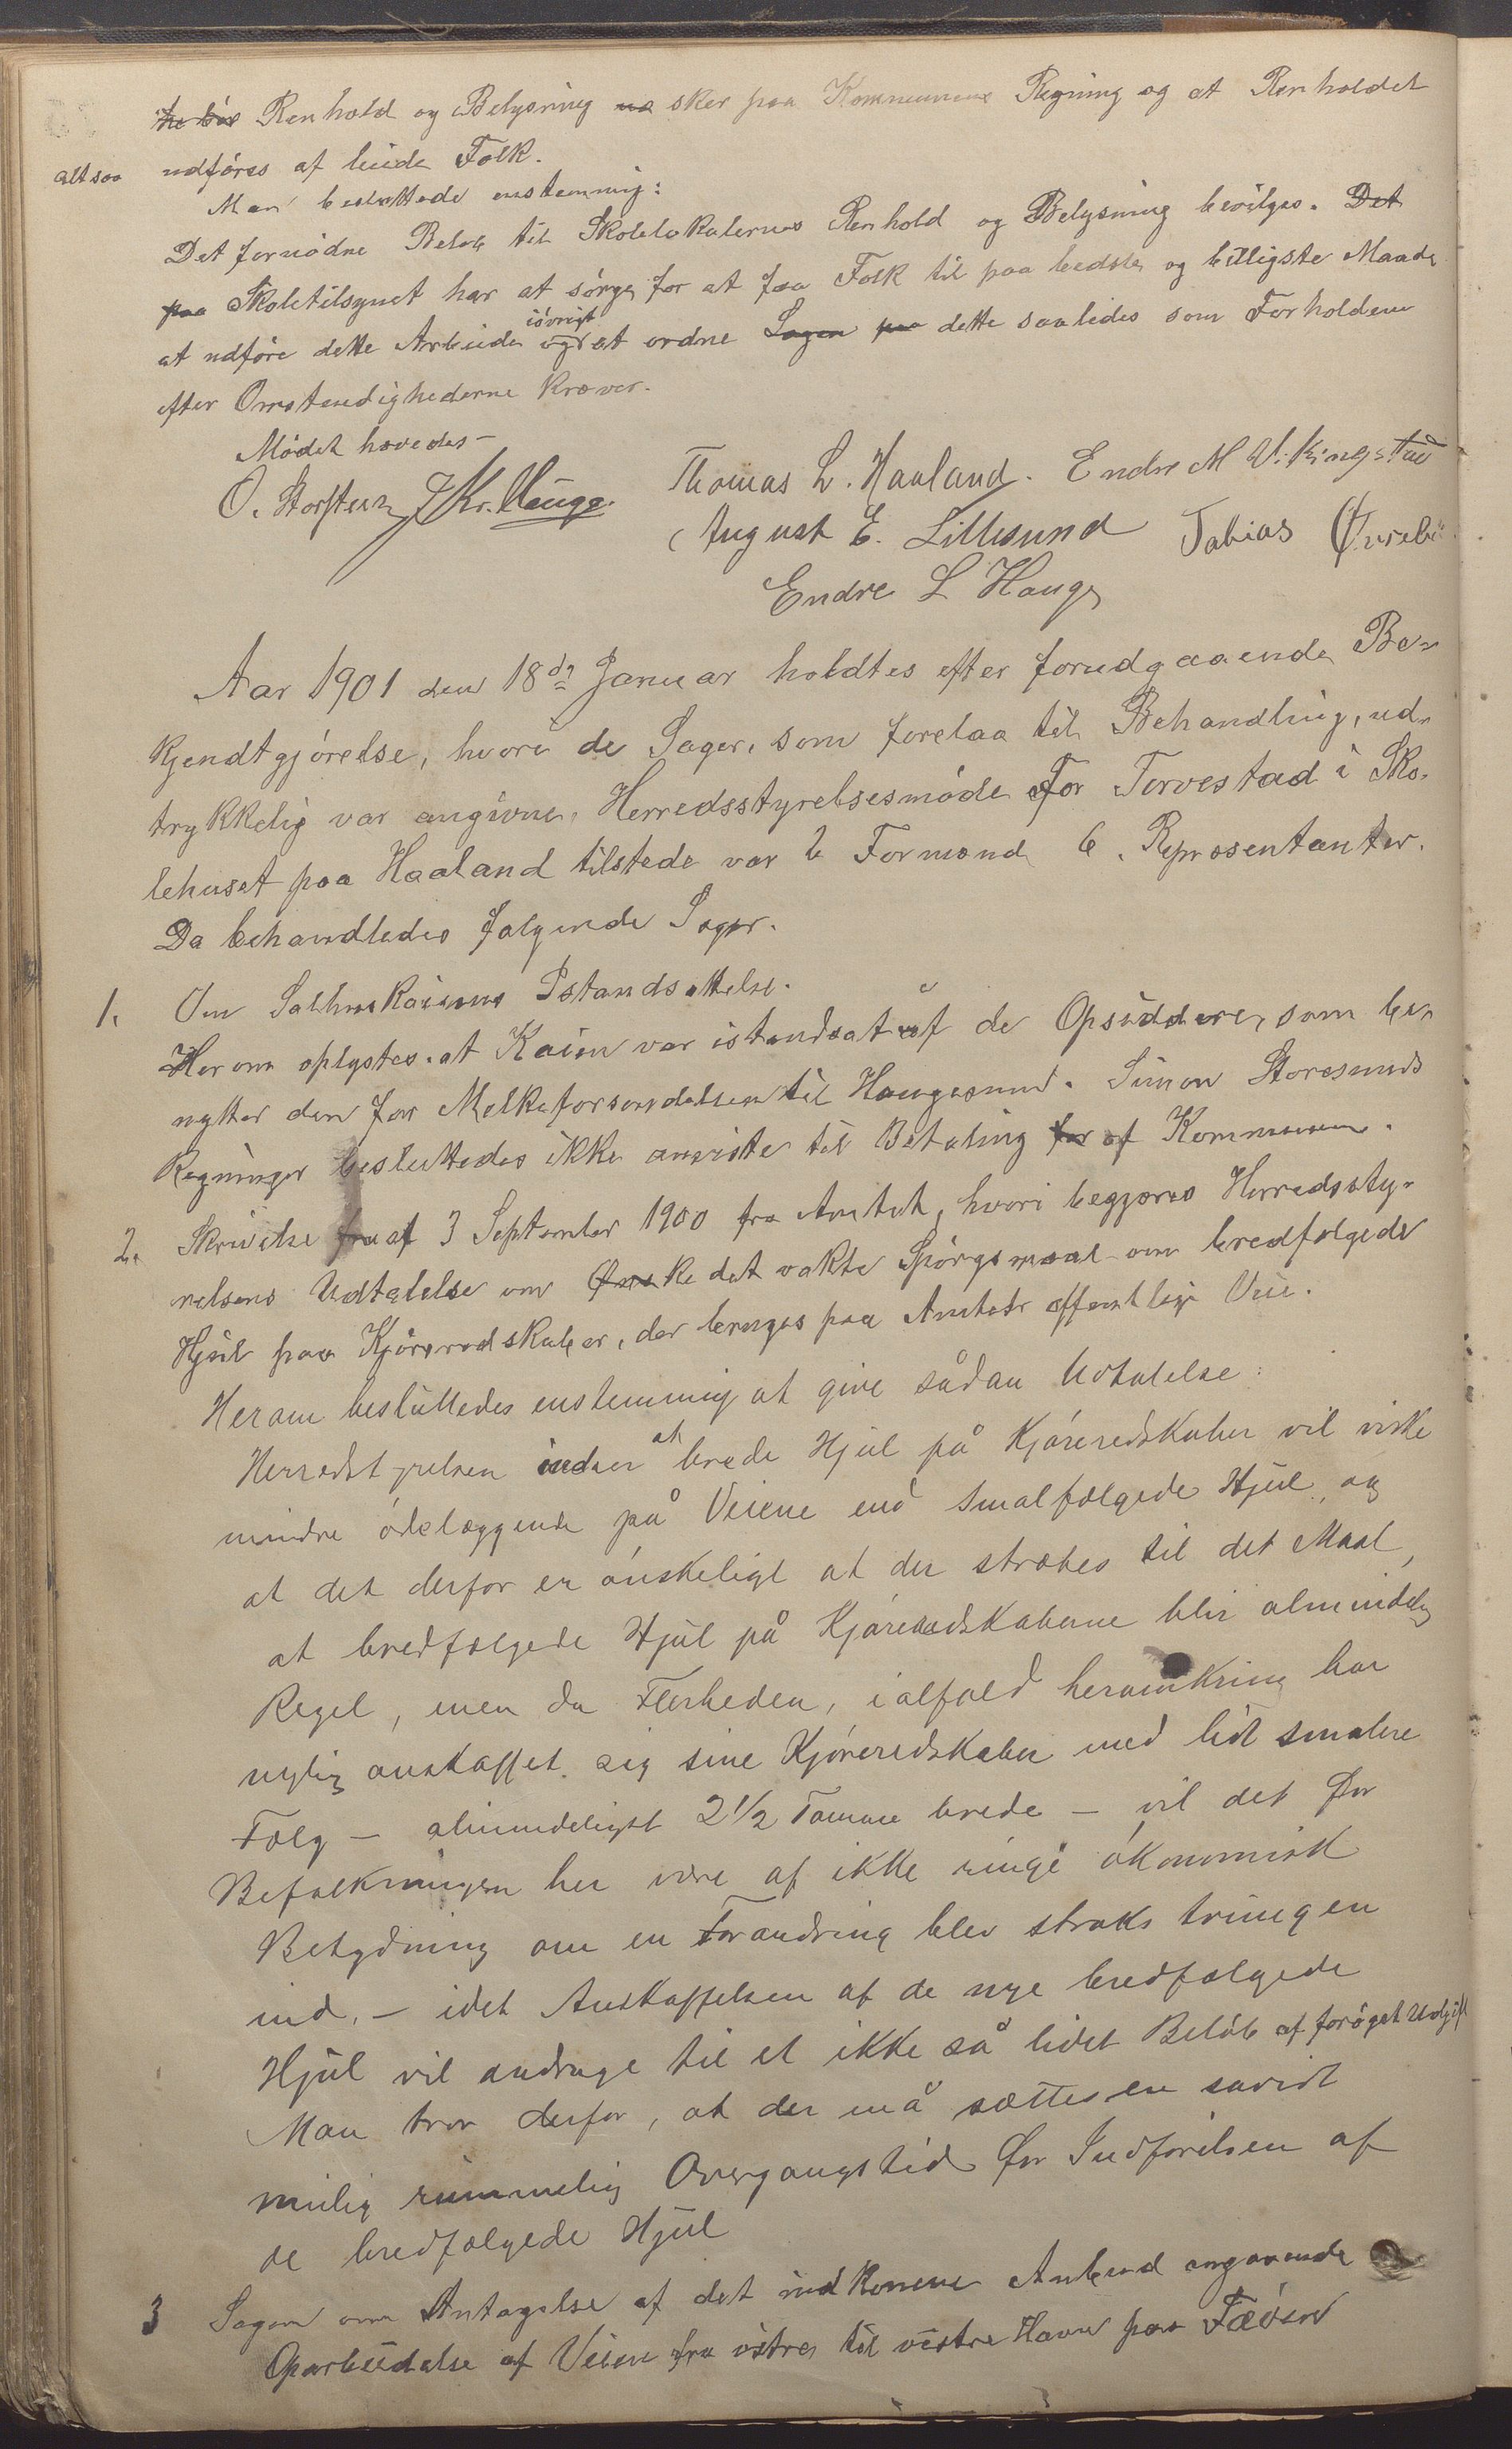 Renhold og Belysning sker paa Kommunens Regning og at Renholdet
altsaa udføres af leiede Folk.
Man besluttede enstemmig:
Det fornødne Beløb til Skolelokalernes Renhold og Belysning bevilges. Det
paa Skoletilsynet har at sørge for at faa Folk til paa bedste og billigste Maade
at udføre dette Arbeide og iøvrigt at ordne Sagen paa dette saaledes som Forholdene
efter Omstændighederne kræver.
Mødet hævedes –
O. Storsteen J. Kr. Hauge. Thomas L. Haaland. Endre M Vikingstad
August E. Lillesund Tobias Øvrebø
Endre L Hauge
Aar 1901 den 18de Januar holdtes efter forudgaaende Be-
kjendtgjørelse, hvori de Sager, som forelaa til Behandling, ud-
trykkelig var angivne, Herredsstyrelsesmøde for Torvestad i Sko-
lehuset paa Haaland tilstede var 6 Formænd 6. Repræsentanter.
Da behandledes følgende Sager.
1. Om Salhuskaiens Istandsættelse.
Herom oplystes at Kaien var istandsat af de Opsiddere, som be-
nytter den for Melkeforsendelsen til Haugesund. Simon Storesunds
Regninger besluttedes ikke anviste til Betaling for af Kommunen.
2. Skrivelse fra af 3 September 1900 fra Amtet, hvori begjæres Herredssty-
relsens Udtalelse om Ønske det vakte Spørgsmaal om bredfælgede
Hjul paa Kjøreredskaber, der bruges paa Amtets offentlige Veie.
Herom beslutledes enstemmig at give sådan Udtalelse:
Herredstyrelsen indser at brede Hjul på Kjøreredskaber vil virke
mindre ødelæggende på Veiene end smalfælgede Hjul, og
at det derfor er ønskeligt at der stræbes til det Maal,
at bredfælgede Hjul på Kjøreredskaberne blir almindelig
Regel, men da Flerheden, ialfald heromkring har
nylig anskaffet sig sine Kjøreredskaber med lidt smalere
Fælg – almindeligst 2½ Tomme brede – vil det for
Befolkningen her være af ikke ringe økonomisk
Betydning om en Forandring blev straks tvungen
ind. – idet Anskaffelsen af de nye bredfælgede
Hjul vil andrage til et ikke så lidet Beløb af forøget Udgift
Man tror derfor, at der må sættes en såvidt
mulig rummelig Overgangstid for Indførelsen af
de bredfælgede Hjul
3 Sagen om Antagelse af det indkomne Anbud angaaende
Oparbeidelse af Veien fra østre til vestre Havn paa Fæøen